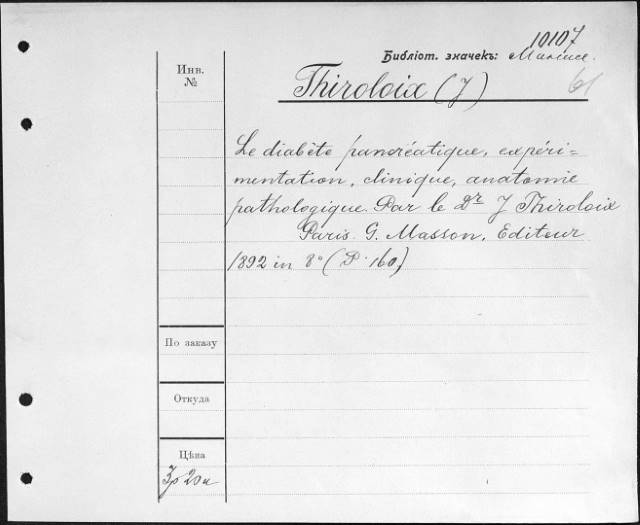 10107
Библіот. значекъ:
61
Инв.
№
Thiroloix (J)
Le diabète pancréatique, expéri-
mentation, clinique, anatomie
pathologique. Par le Dr J Thiroloix
Paris. G. Masson, Editeur
1892 in 8° (P. 160)
По заказу
Откуда
Цѣна
3р 20к